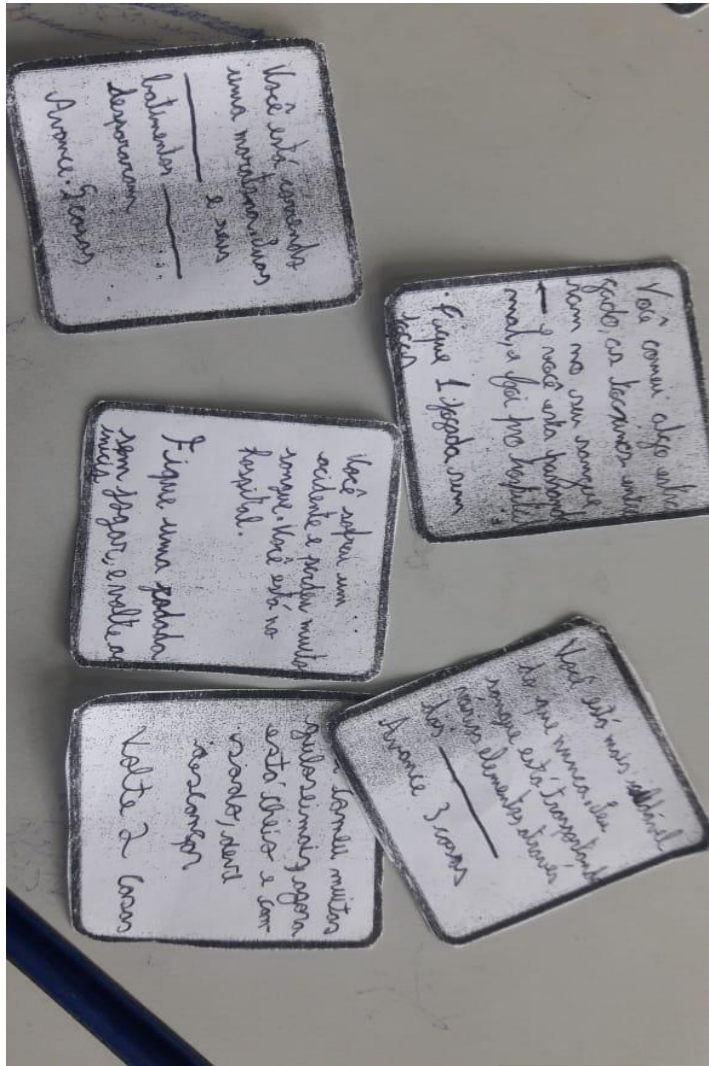 Você está correndo
uma maratona, suas
e seus
batimentos
dispararam
Avance 2 casas
Você comeu algo estra
gado, as toxinas entra
ram no seu sangue
e você está passando
mal, e foi pro hospital
• Fique 1 jogada sem
jogar
Você sofreu um
acidente e perdeu muito
sangue. Você está no
hospital.
Fique uma rodada
sem jogar, e volte ao
início
Você está mais saudável
do que nunca, seu
sangue está transportando
vários elementos através
dos
Avance 3 casas
comeu muitas
guloseimas, agora
está cheio e can-
sado, deve
descansar
Volte 2 casas